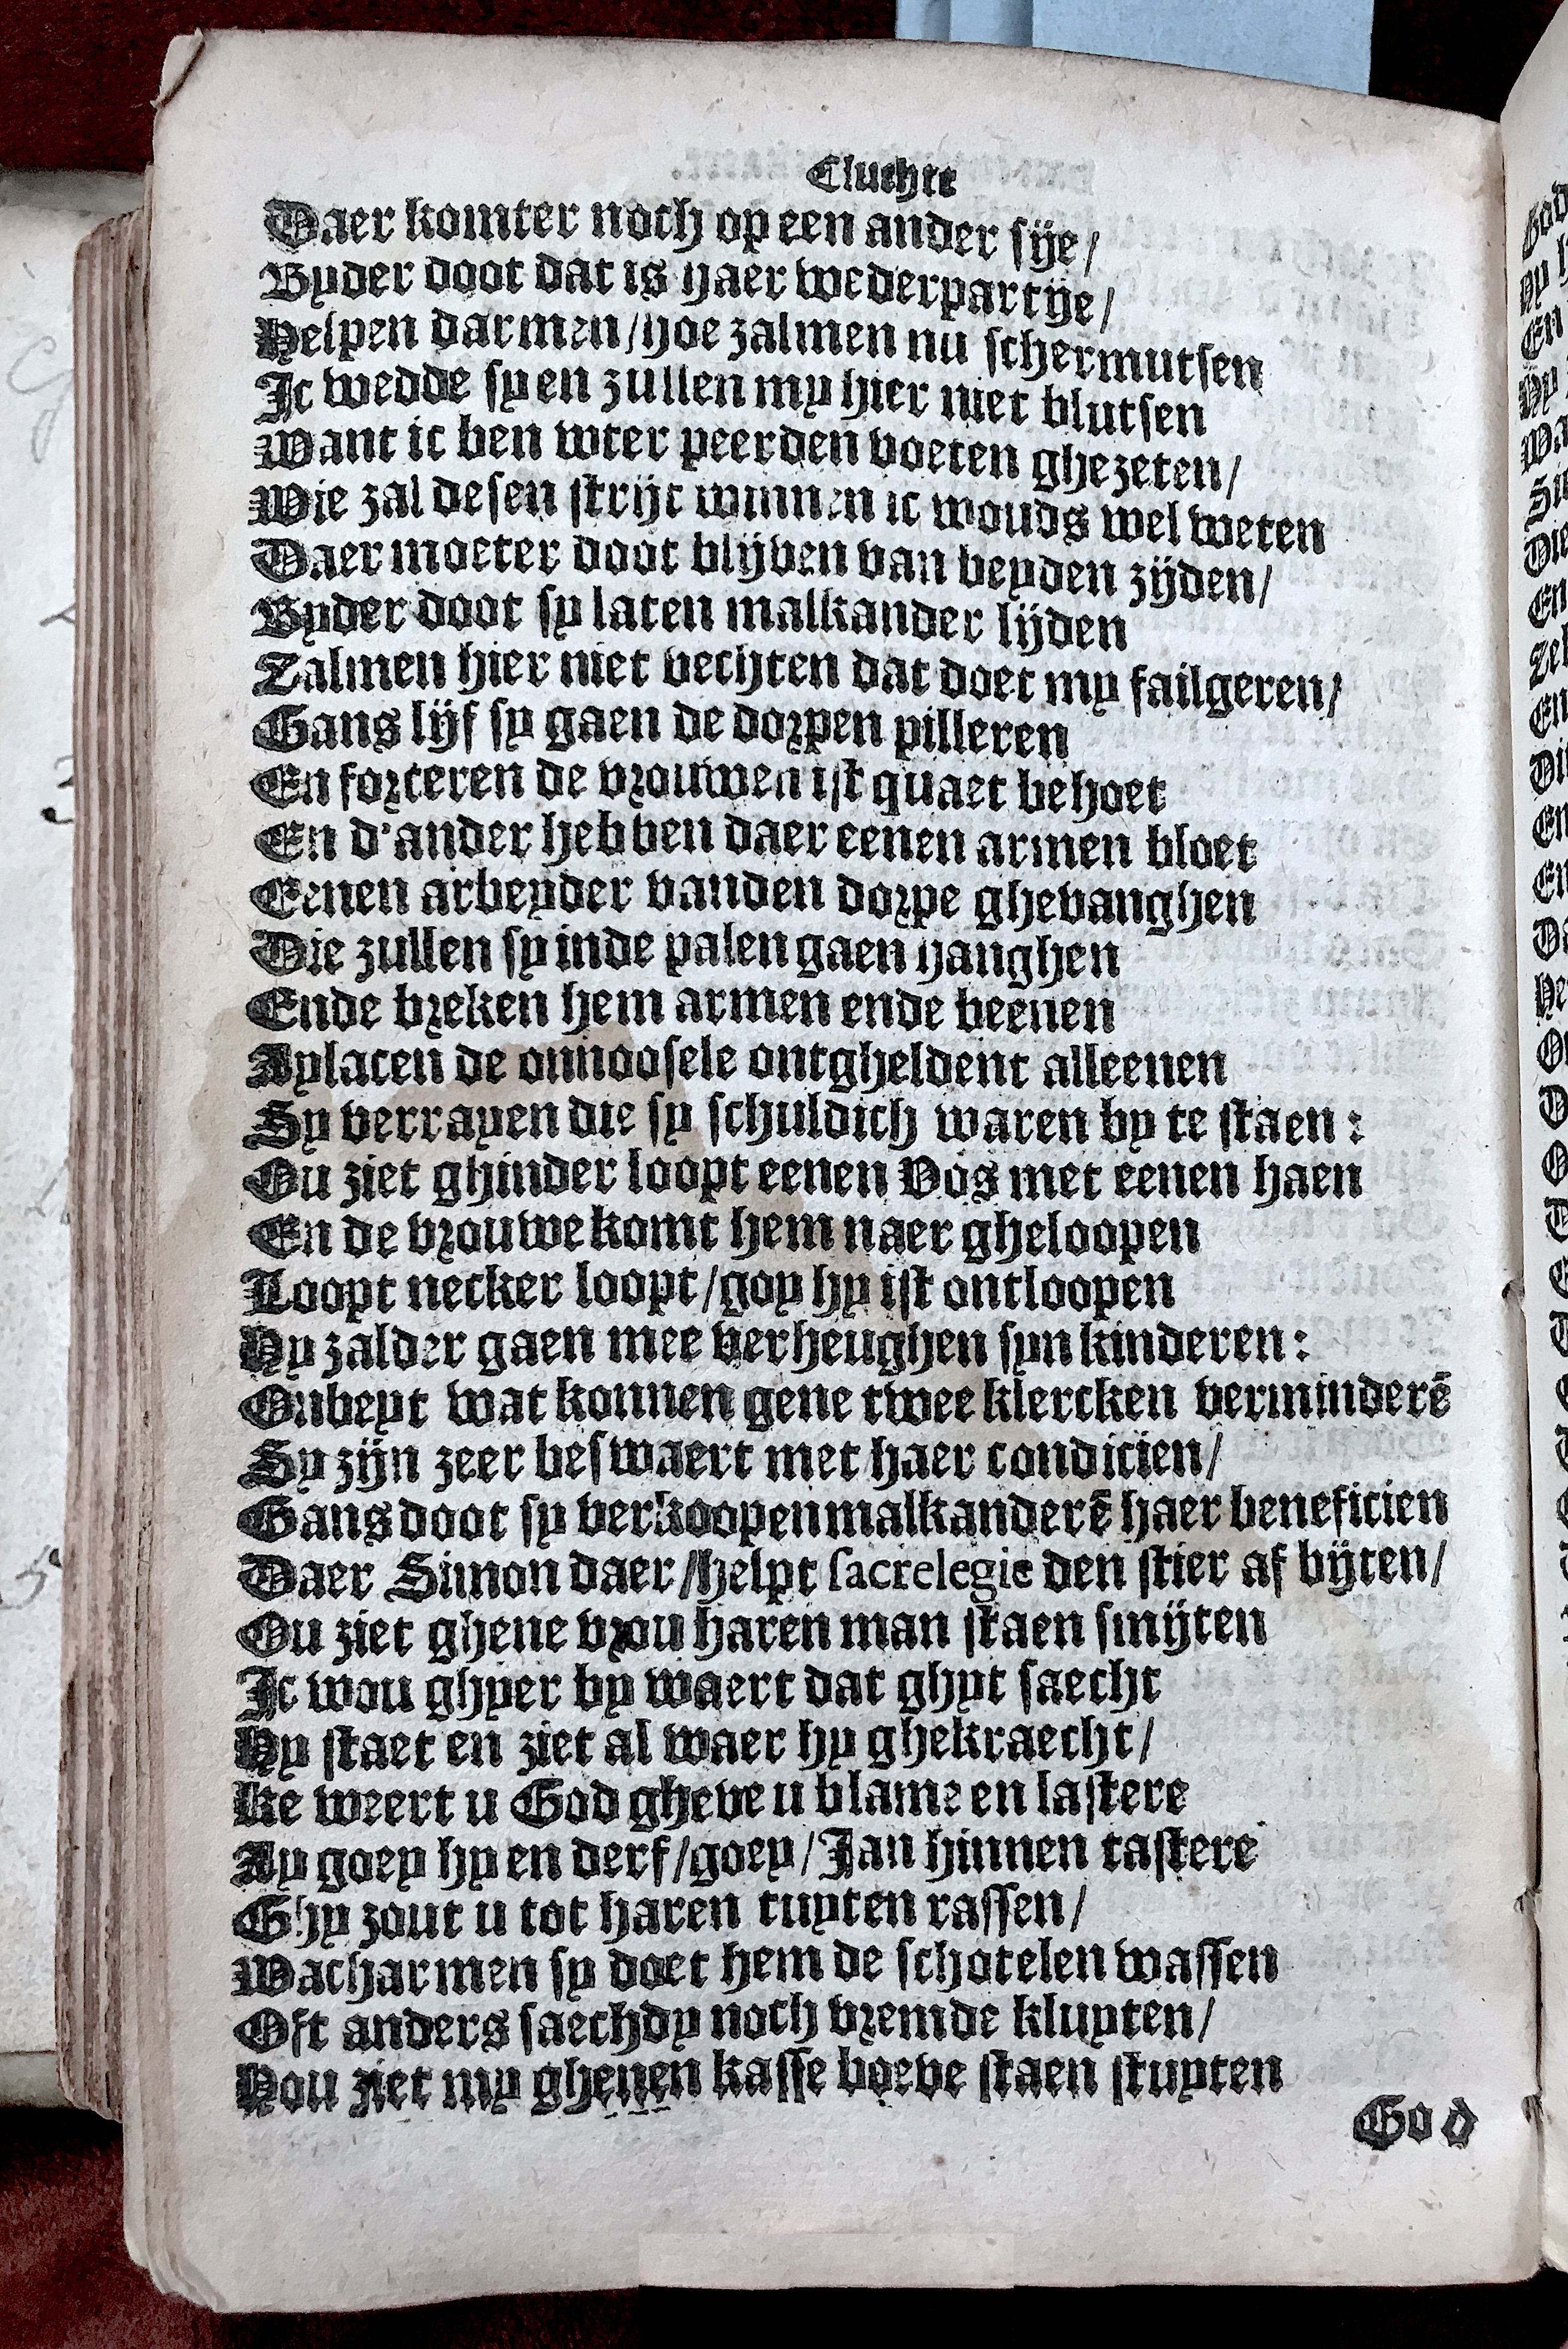 Cluchte
Daer komter noch op een ander sije/
Byder doot dat is haer wederpartije/
Helpen darmen/hoe zalmen nu schermutsen
Ic wedde sy en zullen my hier niet blutsen
Want ic ben wter peerden voeten ghezeten/
Wie zal desen strijt winnen ic wouds wel weten
Daer moeter doot blijven van beyden zijden/
Byder doot sy laten malkander lijden
Zalmen hier niet vechten dat doet my failgeren/
Gans lijf sy gaen de dorpen pilleren
En forceren de vrouwen ist quaet behoet
En d'ander hebben daer eenen armen bloet
Eenen arbeyder vanden dorpe ghevanghen
Die zullen sy inde palen gaen hanghen
Ende breken hem armen ende beenen
Aylacen de onnoosele ontgheldent alleenen
Sy verrayen die sy schuldich waren by te staen:
Ou ziet ghinder loopt eenen Vos met eenen haen
En de vrouwe komt hem naer gheloopen
Loopt necker loopt/goy hy ist ontloopen
Hy zalder gaen mee verheughen syn kinderen:
Onbeyt wat konnen gene twee klercken verminderē
Sy zijn zeer beswaert met haer condicien/
Gans doot sy verkoopen malkanderē haer beneficien
Daer Simon daer/helpt sacrelegie den stier af bijten/
Ou ziet ghene vrou haren man staen smijten
Ic wou ghyer by waert dat ghyt saecht
Hy staet en ziet al waer hy ghekraecht/
Ke weert u God gheve u blame en lastere
Ay goey hy en derf/goey/Jan hinnen tastere
Ghy zout u tot haren tuyten rassen/
Wacharmen sy doet hem de schotelen wassen
Oft anders saechdy noch vremde kluyten/
Nou ziet my ghenen kasse boeve staen stuyten
God